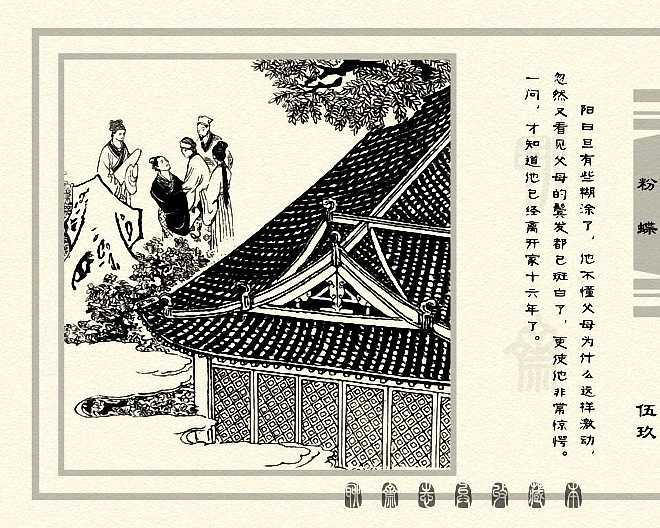 阳曰旦有些糊涂了，他不懂父母为什么这样激动，
忽然又看见父母的鬓发都已斑白了，更使他非常惊愕。
一问，才知道他已经离开家十六年了。
粉蝶
伍玖